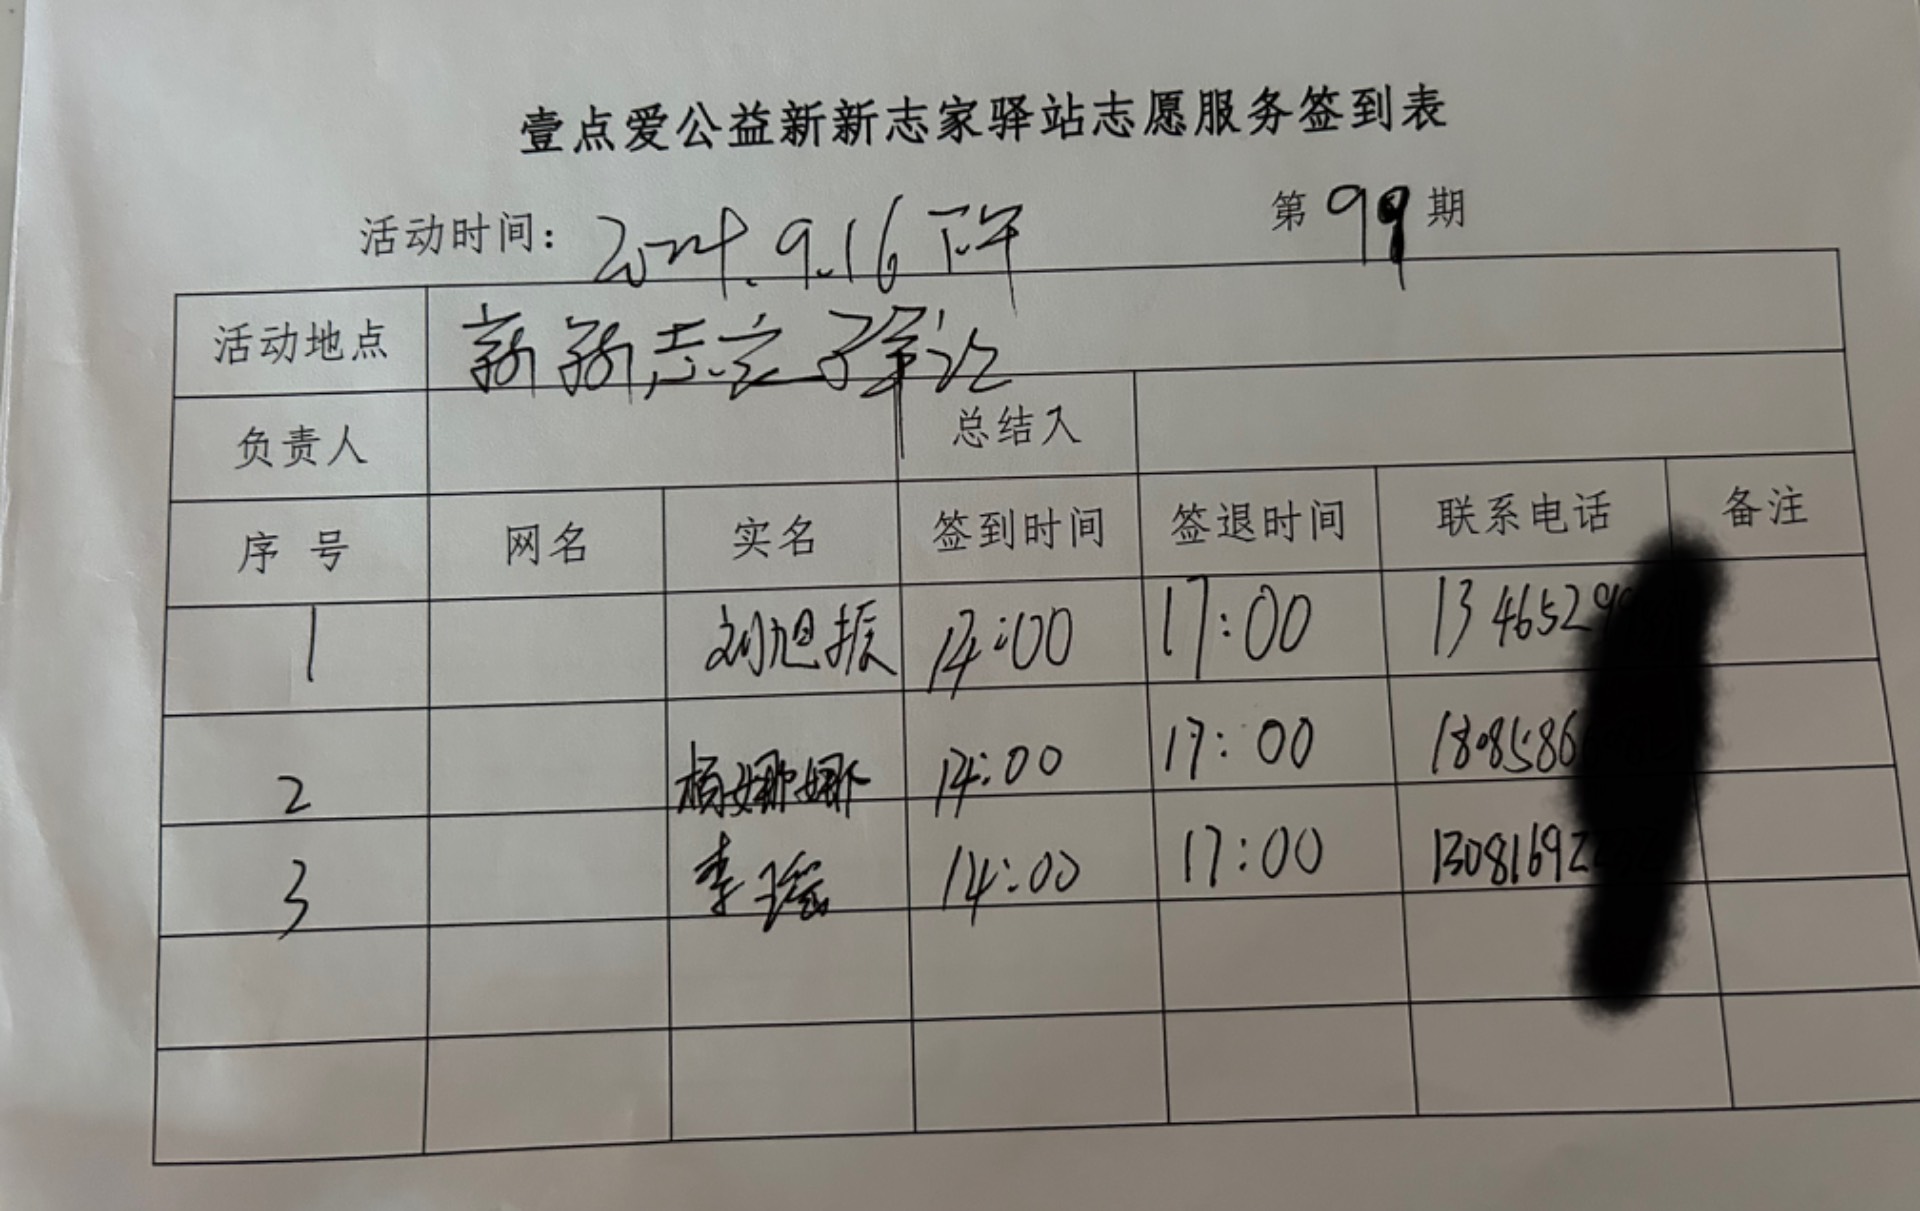 壹点爱公益新新志家驿站志愿服务签到表
活动时间：2024.9.16 下午 第 99 期
活动地点 新新志家驿站
负责人 总结人
序 号 网名 实名 签到时间 签退时间 联系电话 备注
1 刘旭振 14:00 17:00 1346529
2 杨娜娜 14:00 17:00 1808586
3 李瑶 14:00 17:00 13081692